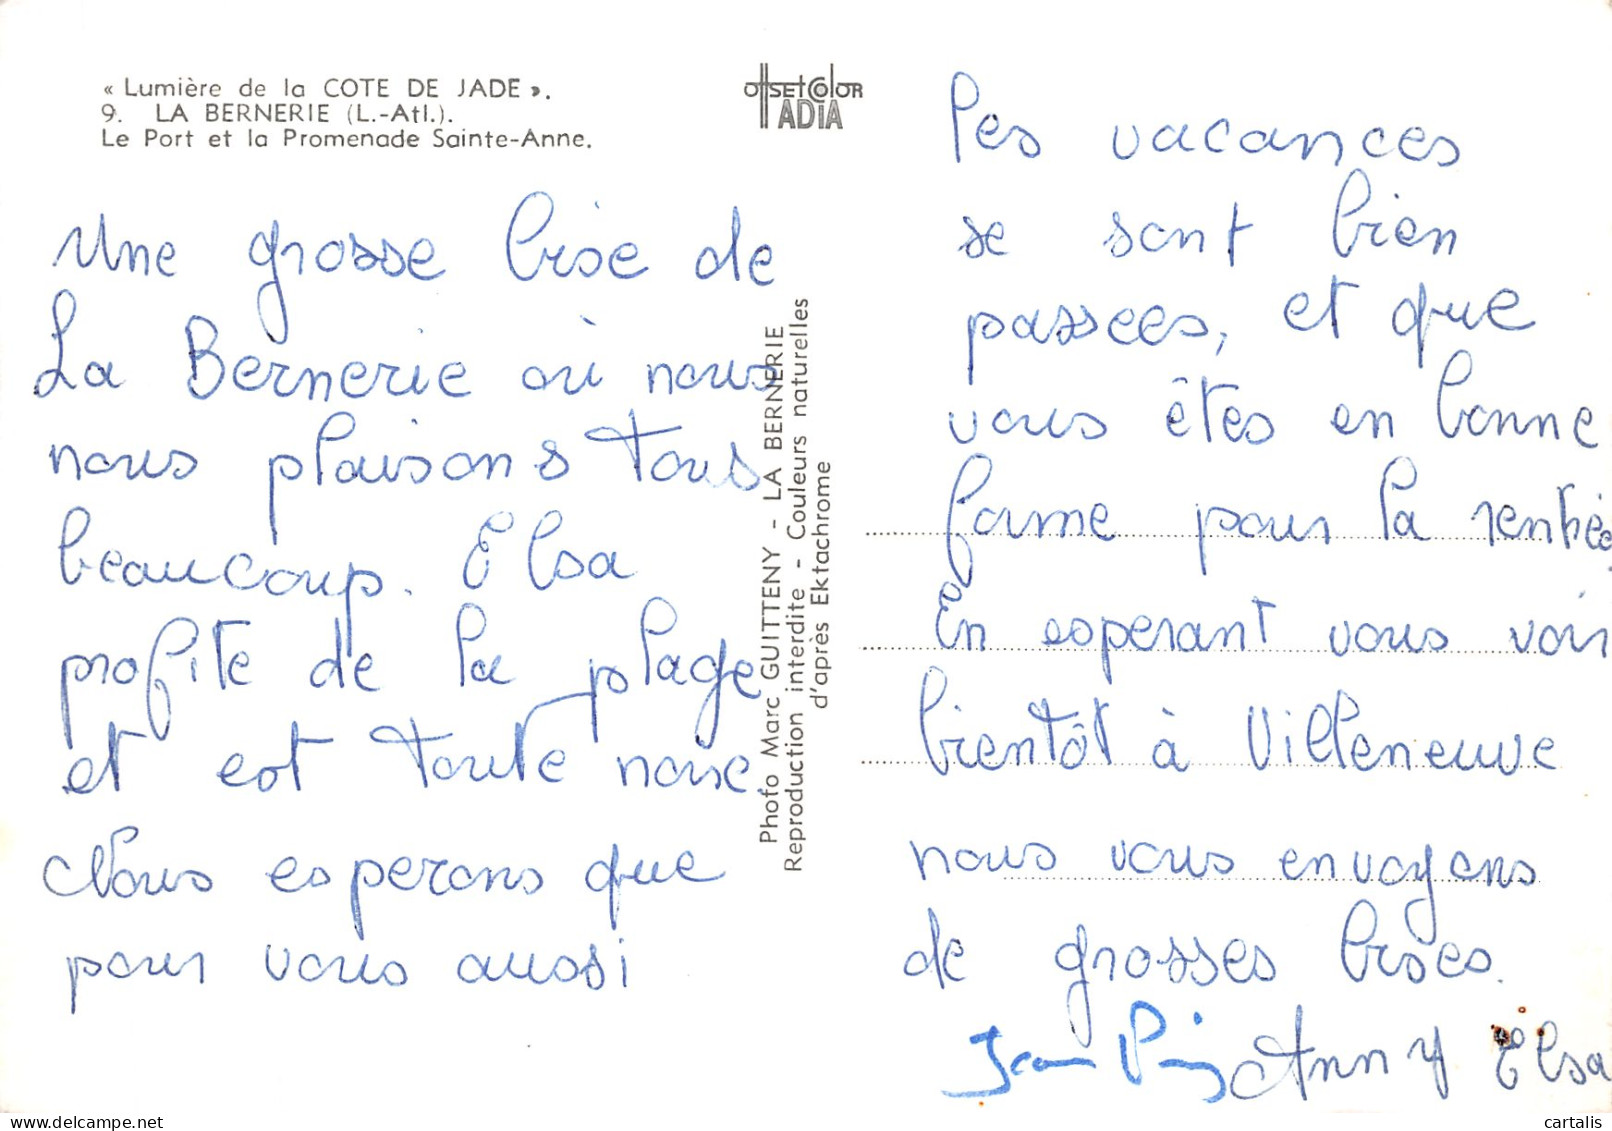 « Lumière de la COTE DE JADE ».
9. LA BERNERIE (L.-Atl.).
Le Port et la Promenade Sainte-Anne.
offsetcolor
ADIA
Une grosse bise de
La Bernerie où nous
nous plaisons tous
beaucoup. Elsa
profite de la plage
et est toute noire.
Nous esperons que
pour vous aussi
Photo Marc GUITTENY - LA BERNERIE
Reproduction interdite - Couleurs naturelles
d'après Ektachrome
les vacances
se sont bien
passees, et que
vous êtes en bonne
forme pour la rentrée
En esperant vous voir
bientôt à Villeneuve
nous vous envoyons
de grosses bises.
Jean Anny Elsa
cartalis